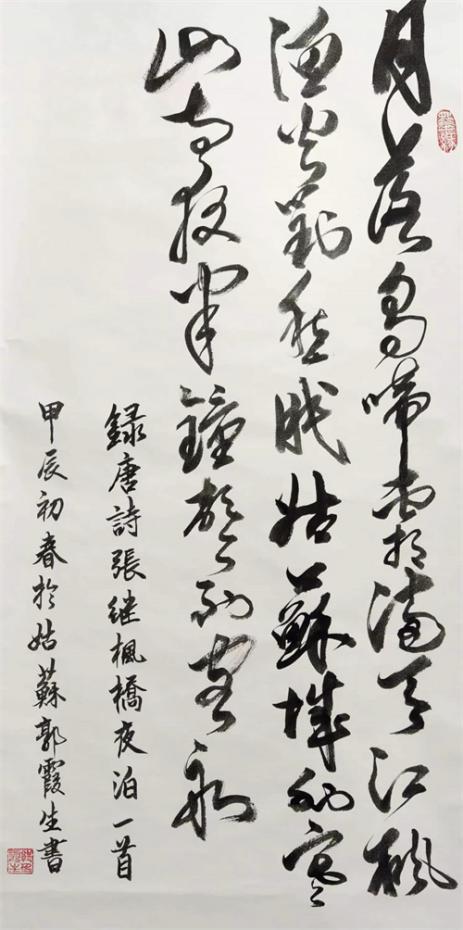 月落烏啼霜滿天江楓
漁火對愁眠姑蘇城外寒
山寺夜半鐘聲到客船
録唐詩張继楓橋夜泊一首
甲辰初春於姑蘇郭霞生書